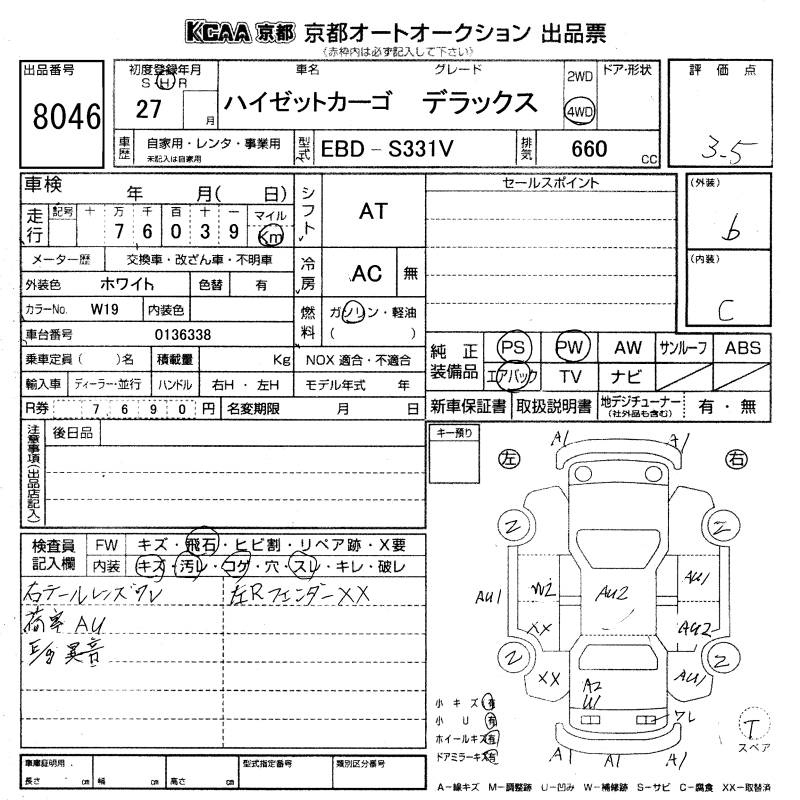 KCAA 京都 京都オートオークション 出品票
《赤枠内は必ず記入して下さい》
出品番号
8046
初度登録年月
S H R
27 月
車名 グレード
ハイゼットカーゴ デラックス
2WD
4WD
ドア・形状
評価点
3.5
車歴 自家用・レンタ・事業用
未記入は自家用
型式 EBD-S331V
排気 660 cc
車検 年 月( 日)
走行 記号 十 万 千 百 十 一 マイル
7 6 0 3 9 Km
シフト AT
セールスポイント
(外装)
b
(内装)
C
メーター歴 交換車・改ざん車・不明車
冷房 AC 無
外装色 ホワイト 色替 有
カラーNo. W19 内装色
燃料 ガソリン・軽油
( )
車台番号 0136338
乗車定員( )名 積載量 Kg NOX 適合・不適合
輸入車 ディーラー・並行 ハンドル 右H・左H モデル年式 年
R券 7690円 名変期限 月 日
純正装備品 PS PW AW サンルーフ ABS
エアバック TV ナビ
新車保証書 取扱説明書 地デジチューナー 有・無
(社外品も含む)
注意事項(出品店記入)
後日品
キー預り
左 右
A1
2 2
AU1 W2 AU2 AU1
XX AU2
2 2
XX A2 AU1
U1
ワレ
A1 A1 A1
検査員記入欄 FW キズ・飛石・ヒビ割・リペア跡・X要
内装 キズ・汚レ・コゲ・穴・スレ・キレ・破レ
右テールレンズワレ 左Rフェンダー XX
荷室 AU
E/g 異音
小キズ 有
小U 有
ホイールキズ 有
ドアミラーキズ 有
T
スペア
車庫証明用.
長さ cm 幅 cm 高さ cm
型式指定番号 類別区分番号
A-線キズ M-調整跡 U-凹み W-補修跡 S-サビ C-腐食 XX-取替済